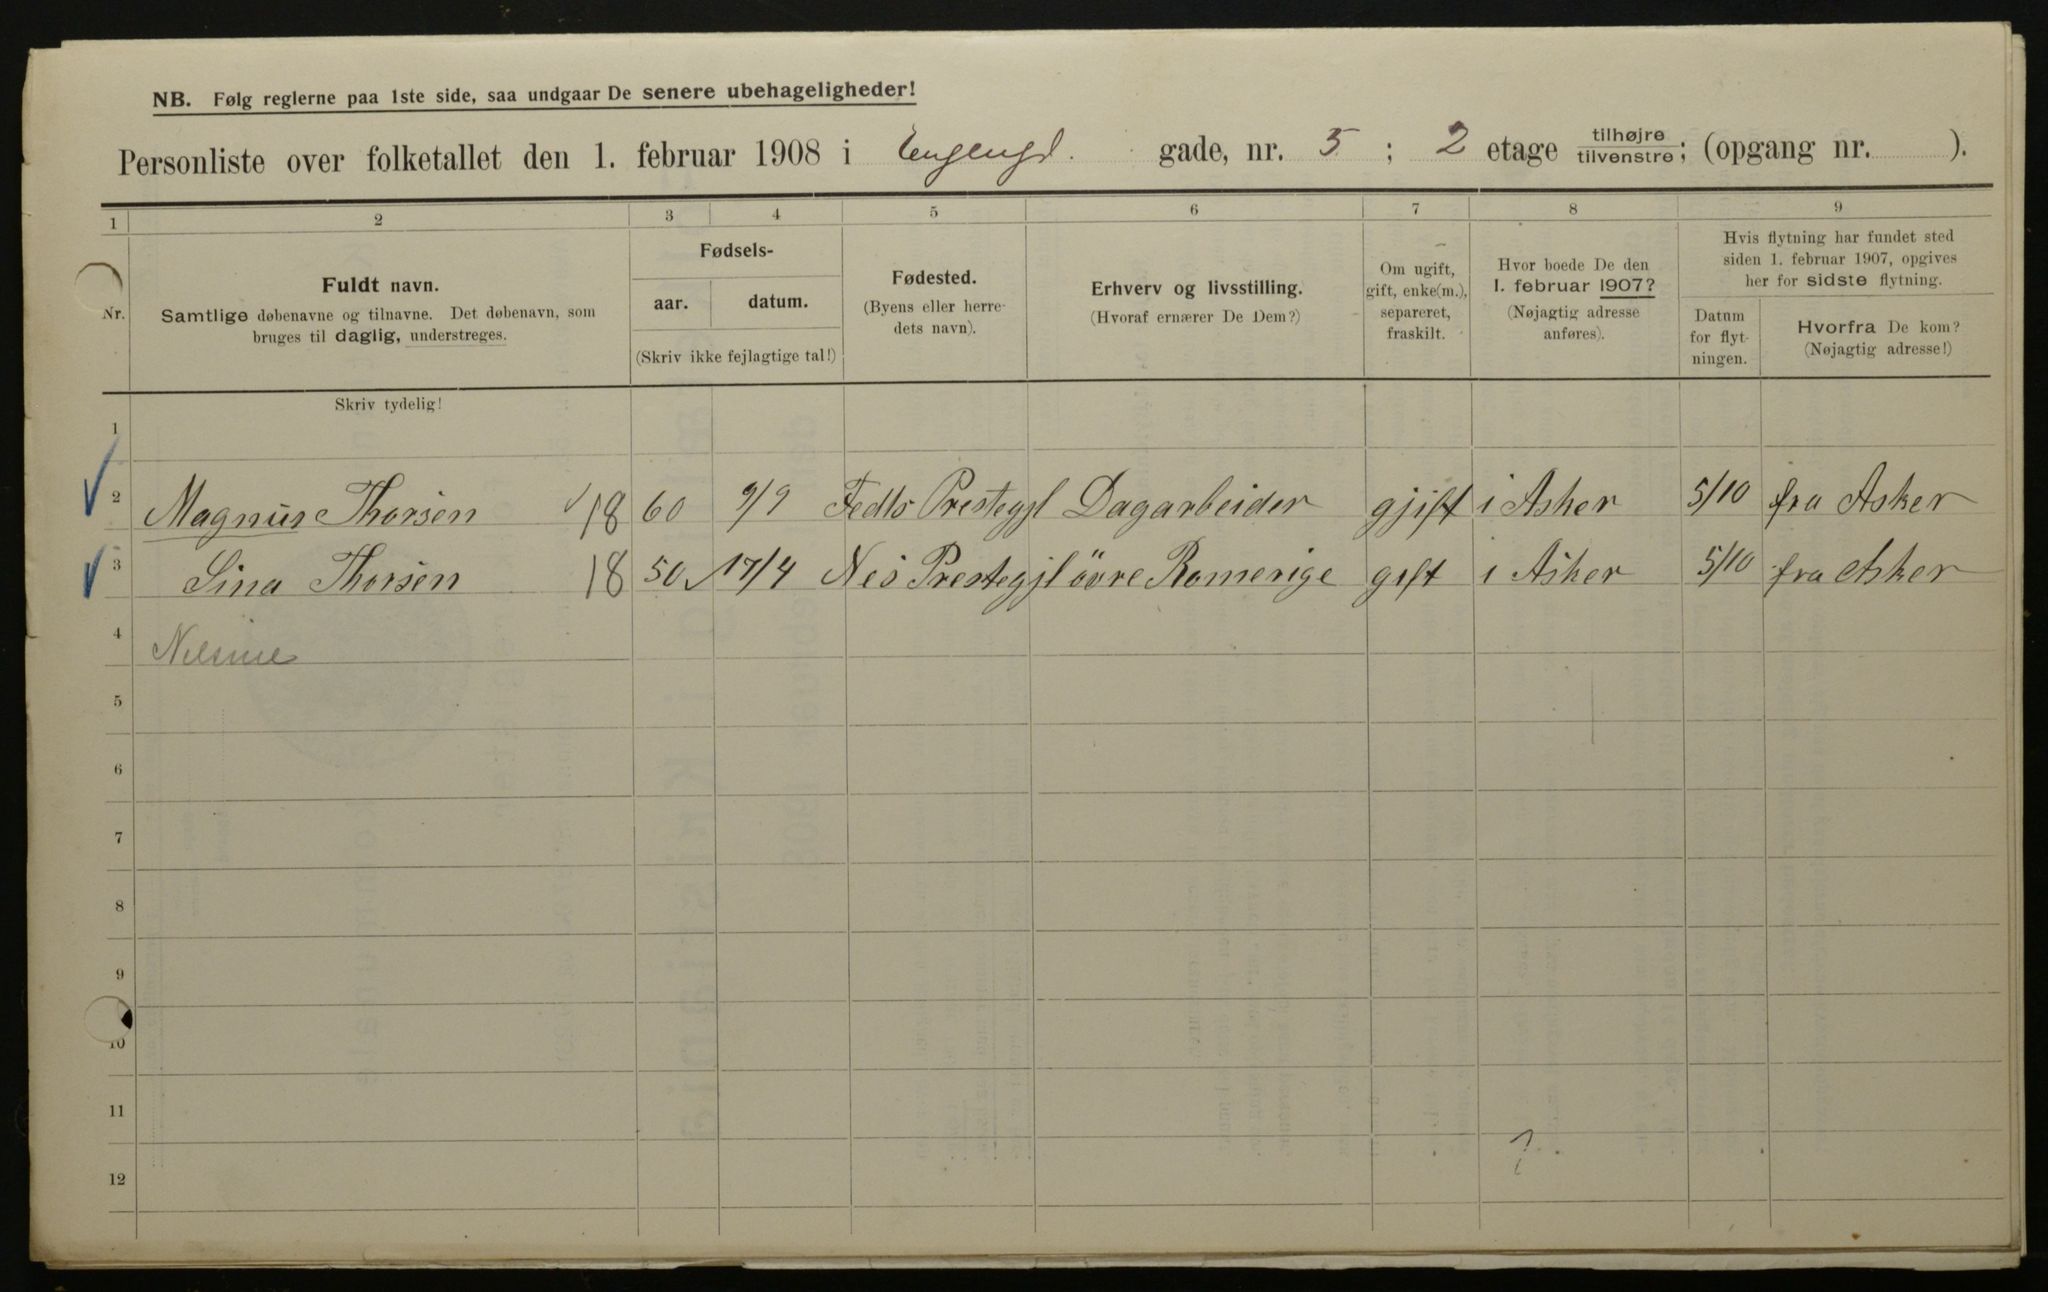 NB. Følg reglerne paa 1ste side, saa undgaar De senere ubehageligheder!
Personliste over folketallet den 1. februar 1908 i Engengd. gade, nr. 5 ; 2 etage tilhøjre / tilvenstre; (opgang nr. ).
1 2 3 4 5 6 7 8 9
Nr.
Fuldt navn.
Samtlige døbenavne og tilnavne. Det døbenavn, som
bruges til daglig, understreges.
Fødsels-
aar. datum.
(Skriv ikke fejlagtige tal!)
Fødested.
(Byens eller herre-
dets navn).
Erhverv og livsstilling.
(Hvoraf ernærer De Dem?)
Om ugift,
gift, enke(m.),
separeret,
fraskilt.
Hvor boede De den
1. februar 1907?
(Nøjagtig adresse
anføres).
Hvis flytning har fundet sted
siden 1. februar 1907, opgives
her for sidste flytning.
Datum
for flyt-
ningen.
Hvorfra De kom?
(Nøjagtig adresse!)
Skriv tydelig!
1
2 Magnus Thorsen 18 60 9/9 Prestegjl Dagarbeider gjift i Asker 5/10 fra Asker
3 Lina Thorsen 18 50 17/4 Nes Prestegjl övre Romerige gift i Asker 5/10 fra Asker
4 Nilsine
5
6
7
8
9
10
11
12
?